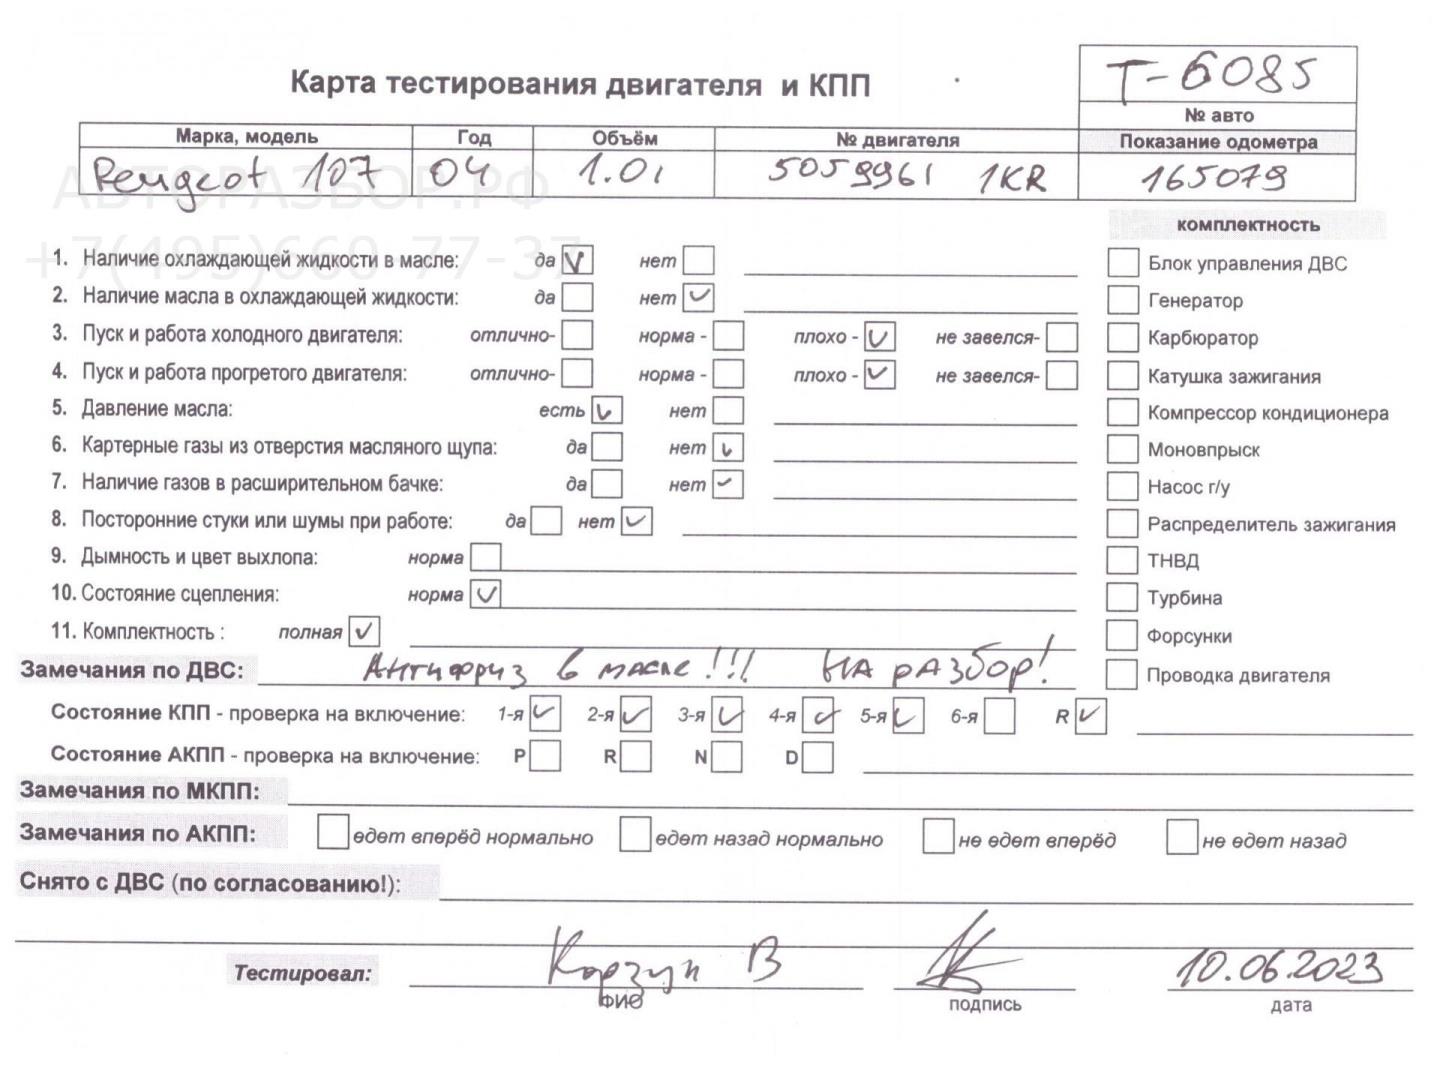 Т-6085
Карта тестирования двигателя и КПП
№ авто
Марка, модель Год Объём № двигателя Показание одометра
Peugeot 107 04 1.0i 5059961 1KR 165079
АВТОРАЗБОР.РФ
+7(495)660-77-37
комплектность
1. Наличие охлаждающей жидкости в масле: да V нет
Блок управления ДВС
2. Наличие масла в охлаждающей жидкости: да нет ✓
Генератор
3. Пуск и работа холодного двигателя: отлично- норма - плохо - ✓ не завелся-
Карбюратор
4. Пуск и работа прогретого двигателя: отлично- норма - плохо - ✓ не завелся-
Катушка зажигания
5. Давление масла: есть ✓ нет
Компрессор кондиционера
6. Картерные газы из отверстия масляного щупа: да нет ✓
Моновпрыск
7. Наличие газов в расширительном бачке: да нет ✓
Насос г/у
8. Посторонние стуки или шумы при работе: да нет ✓
Распределитель зажигания
9. Дымность и цвет выхлопа: норма
ТНВД
10. Состояние сцепления: норма ✓
Турбина
11. Комплектность : полная ✓
Форсунки
Замечания по ДВС: Антифриз в масле!!! НА разбор!
Проводка двигателя
Состояние КПП - проверка на включение: 1-я ✓ 2-я ✓ 3-я ✓ 4-я ✓ 5-я ✓ 6-я R ✓
Состояние АКПП - проверка на включение: P R N D
Замечания по МКПП:
Замечания по АКПП: едет вперёд нормально едет назад нормально не едет вперёд не едет назад
Снято с ДВС (по согласованию!):
Тестировал: Корзун В 10.06.2023
ФИО подпись дата